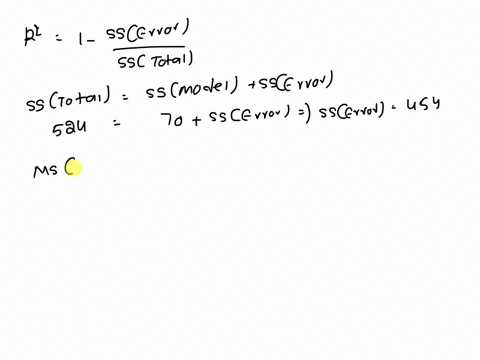 R² = 1 - SS(Error) / SS(Total)
SS(Total) = SS(Model) + SS(Error)
524 = 70 + SS(Error) =) SS(Error) = 454
MS (